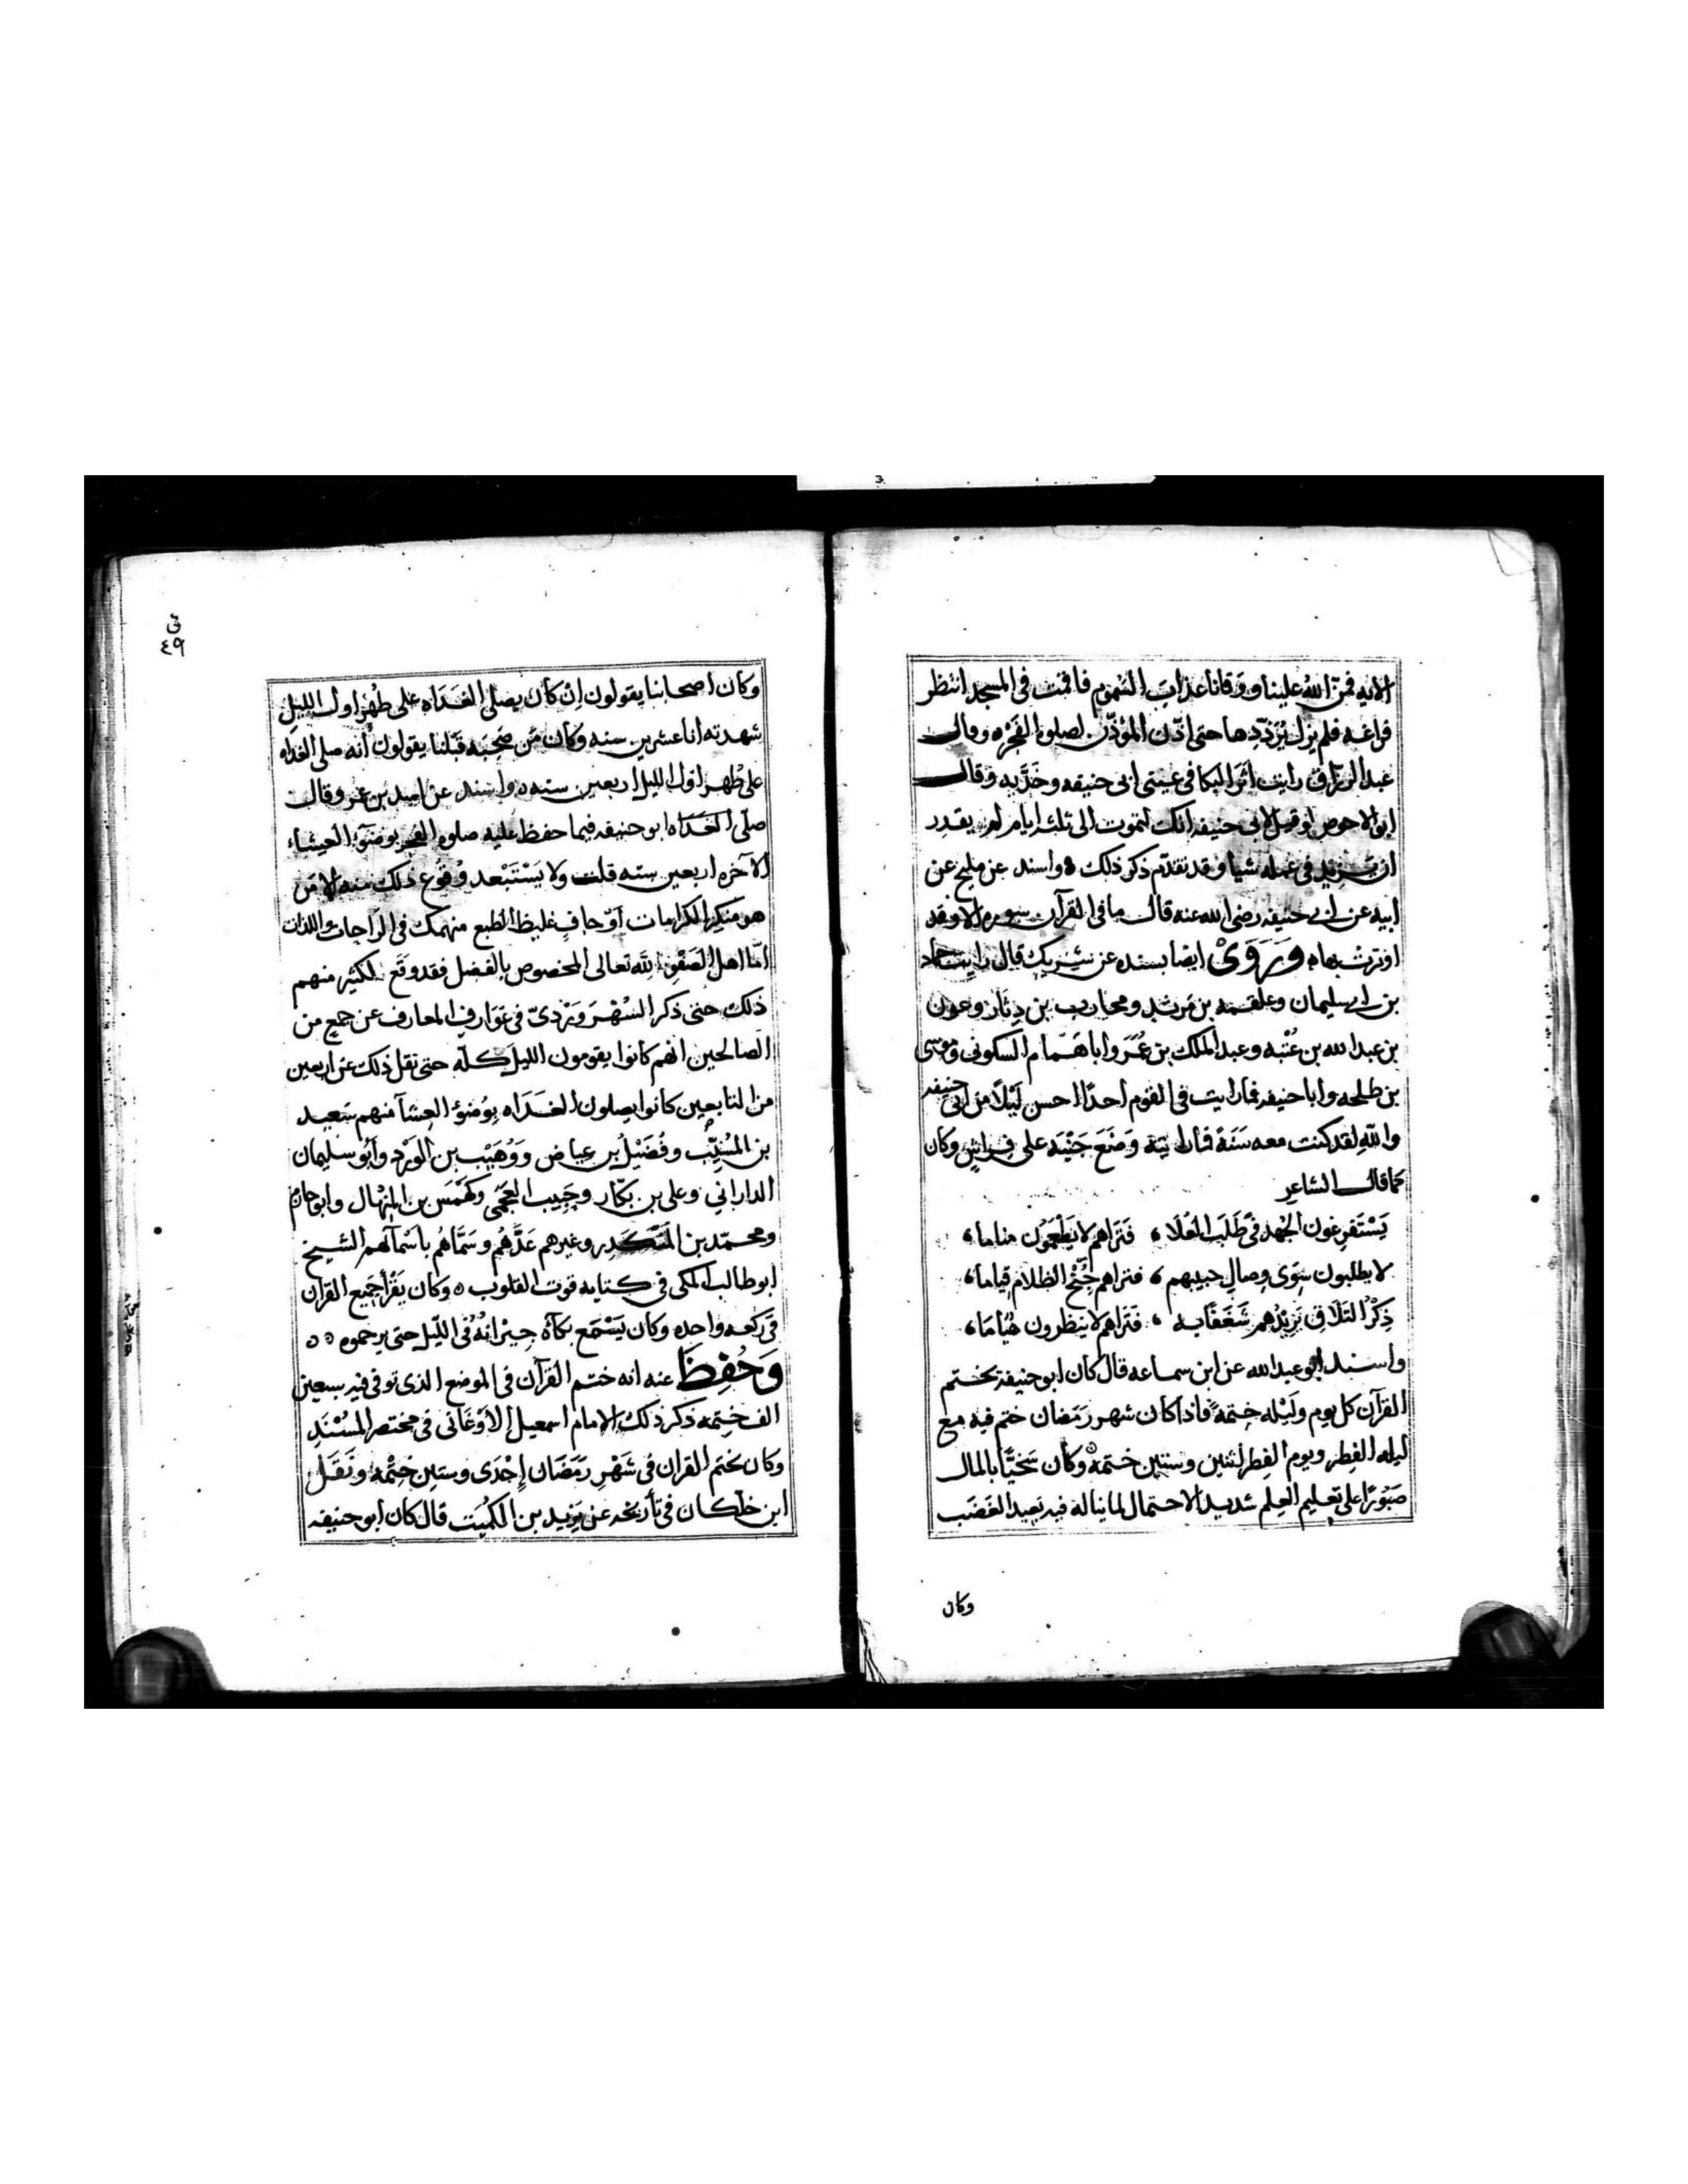 الايه فمنّ اللهُ علينا ووَقانا عذابَ السَّمُوم فاقمت فى المسجد انتظر
فراغه فلم يزل يُرَدِّدها حتى اذّن المؤذّن لصلوه الفَجْره وقال
عبد الرزاق رايت اثر البكا فى عينى ابى حنيفه وخدَّيه وقال
ابو الاحوص لو قيل لابى حنيفه انك تموت الى ثلثه ايام لم يقدر
ان يزيد فى عمله شيا وقد تقدّم ذكر ذلك ٥ واسند عن مليح عن
ابيه عن ابى حنيفه رضى الله عنه قال ما فى القرآن سوره الا وقد
اوترت بها ٥ وَرَوَىْ ايضا بسنده عن شريك قال رايت حماد
بن ابى سليمان وعلقمه بن مَرثدٍ ومحارب بن دِثار وعون
بن عبد الله بن عُتْبه وعبد الملك بن عُمَر وابا هَمّام السكونى وموسى
بن طلحه وابا حنيفه فما رايت فى القوم احدًا احسن لَيْلًا من ابى حنيفه
واللهِ لقد كنت معه سَنَةً فما رايته وَضَعَ جَنْبَه على فِراشٍ وكان
كما قال الشاعر
يَسْتَفرِغون الجُهد فى طَلَب العُلَا ، فَتَراهم لا يَطْعَمُون مناما ،
لا يطلبون سِوَى وِصالِ حبيبهم ، فتراهم جُنْحَ الظلام قِياما ،
ذِكْرُ التَلَاقِ يَزِيْدُهم شَغَفًا به ، فَتَراهم لا ينظرون هُيَّامَا ،
واسند ابو عبد الله عن ابن سماعه قال كان ابو حنيفة يختم
القرآن كل يوم ولَيْله خِتمةً فاذا كان شهر رَمَضان ختم فيه مع
ليله الفِطر ويوم الفِطر اثنين وستين ختمه ٥ وكان سَخيًّا بالمال
صَبُورًا على تعليم العِلم شديد الاحتمال لما يناله فيه بعيد الغَضَب
وكان
فى
٤٩
وكان اصحابنا يقولون اِنْ كان يصلى الغَدَاه على طُهْر اول الليل
شهدته انا عشرين سنه وكان مَن صَحِبَه قَبْلنا يقولون انه صلى الغداه
على طُهر اوّل الليل اربعين سنه ٥ واسند عن اسد بن عمرو قال
صلّى الغَدَاه ابو حنيفه فيما حفظ عليه صلوه الفجر بوضؤ العِشاء
الآخره اربعين سنه قلت ولا يَسْتَبْعد وُقوع ذلك منه الا مَن
هو منكر الكرامات اَو جافٍ غليظ الطبع منهمك فى الراحات واللذات
امّا اهل الصَفْوه لله تعالى المخصوص بالفضل فقد وقَع لكثير منهم
ذلك حتى ذكر السُهْرَوَرْدىّ فى عَوَارِف المعارف عن جمعٍ من
الصالحين انهم كانوا يقومون الليل كلّه حتى نقل ذلك عن اربعين
من التابعين كانوا يصلون الغَدَاه بِوُضؤ العِشآ منهم سَعيد
بن المُسَيِّب وفُضَيْل بن عياض وَوُهَيْب بن الوَرْد وأبُو سليمان
الدارانى وعلى بن بكّار وحَبِيب العَجَمى وكَهْمَس بن المِنهال وابو حازم
ومحمّد بن المنكدر وغيرهم عَدَّهُم وسَمَّاهُم باسْمآئهم الشيخ
ابو طالب المكى فى كتابه قوت القلوب ٥ وكان يَقْرأ جَمِيع القرآن
فى ركعه واحده وكان يَسْمَع بكآهُ جِيْرانُهُ فى اللّيل حتى يرحموه ٥ ٥
وَحُفِظَ عنه انه ختم القرآن فى الموضع الذى توفى فيه سبعين
الف ختِمه ذكر ذلك الامام اسمعيل الاَوْغَانى فى مختصر المُسْنَدِ
وكان يختم القران فى شَهْرِ رَمَضَان إِحْدَى وستين خِتْمة وَنَقَل
ابن خلّكان فى تأريخه عن يَزيد بن الكُمَيت قال كان ابو حنيفه